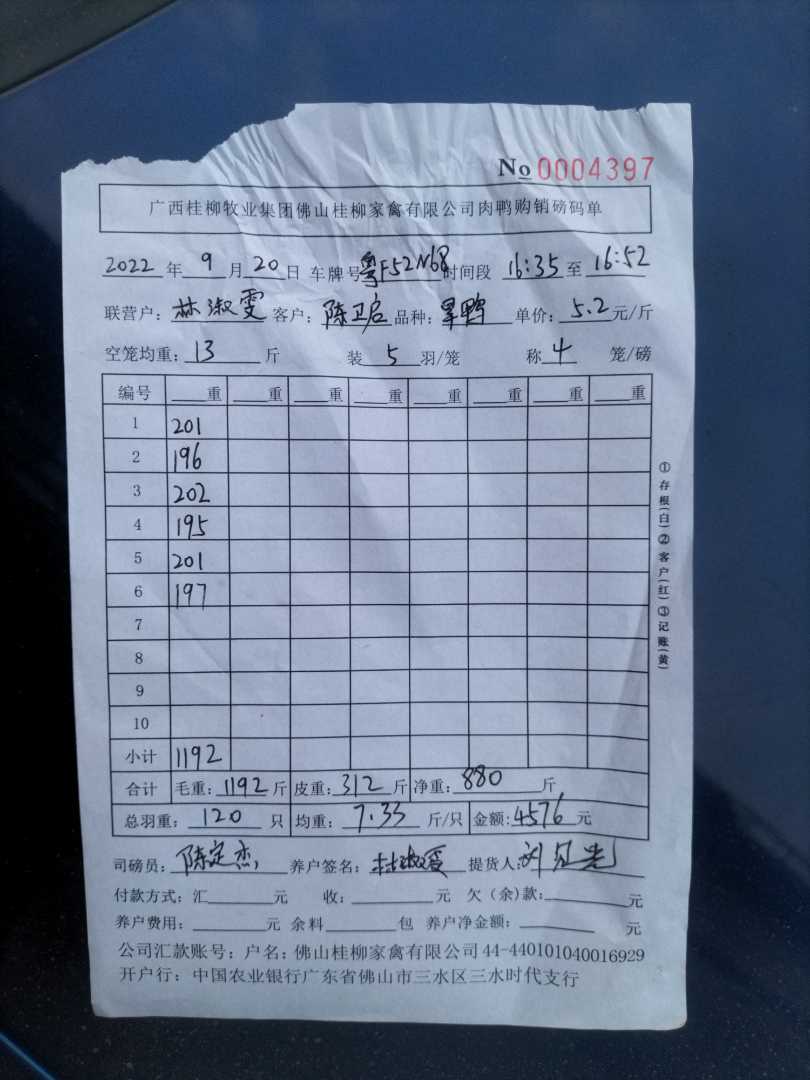 No 0004397
广西桂柳牧业集团佛山桂柳家禽有限公司肉鸭购销磅码单
2022年9月20日 车牌号粤F52N68时间段 16:35至16:52
联营户：林淑雯 客户：陈卫启 品种：旱鸭 单价：5.2元/斤
空笼均重：13斤 装5羽/笼 称4笼/磅
编号 重 重 重 重 重 重 重 重
1 201
2 196
3 202
4 195
5 201
6 197
7
8
9
10
小计 1192
合计 毛重：1192斤 皮重：312斤 净重：880斤
总羽重：120只 均重：7.33斤/只 金额：4576元
司磅员：陈定杰 养户签名：林淑雯 提货人：
付款方式：汇 元 收： 元 欠（余）款： 元
养户费用： 元 余料 包 养户净金额： 元
公司汇款账号：户名：佛山桂柳家禽有限公司 44-440101040016929
开户行：中国农业银行广东省佛山市三水区三水时代支行
①存根(白)②客户(红)③记账(黄)